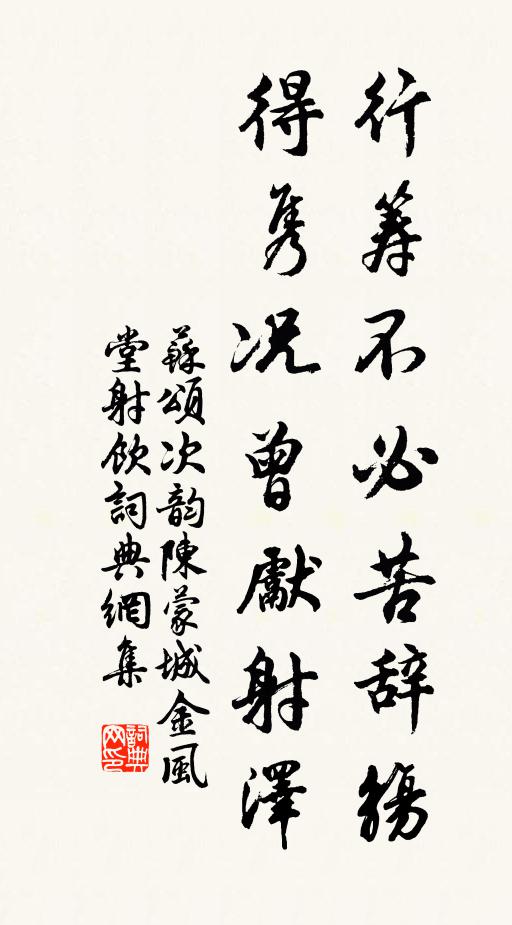 行筹不必苦辞觞
得隽况曾獻射澤
蘇頌次韵陳蒙城金風
堂射飲詞典網集
詞典
网印